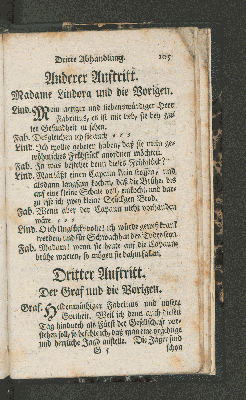 Dritte Abhandlung. 105
Anderer Auftritt.
Madame Lindora und die Vorigen.
Lind. Mein artiger und liebenswürdiger Herr
Fabritius, es ist mir lieb, sie bey gu-
ter Gesundheit zu sehen.
Fab. Desgleichen ob sie auch = = =
Lind. Ich wollte gebeten haben, daß sie mein ge-
wöhnliches Frühstück anordnen möchten.
Fab. In was bestehet denn dieses Frühstück?
Lind. Man läßt einen Capaun klein stossen, und
alsdann langsam kochen, daß die Brühe bis
auf eine kleine Schale voll, einkocht, und dar-
zu esse ich zwey kleine Stückgen Brod.
Fab. Wenn aber der Capaun nicht vorhanden
wäre = = =
Lind. O ich Unglückselige! ich würde gewiß krank
werden und für Schwachheit des Todes seyn.
Fab. Madam! wenn sie heute auf die Capaun-
brühe warten, so mögen sie
Dritter Auftritt.
Der Graf und die Vorigen.
Graf. Heldenmüthiger Fabritius und unsere
Gottheit. Weil ich denn auch diesen
Tag hindurch als Fürst der Gesellschaft vor-
stehen soll, so befehle ich, daß man eine prächtige
und herrliche Jagd anstelle. Die Jäger sind
G 5 schon